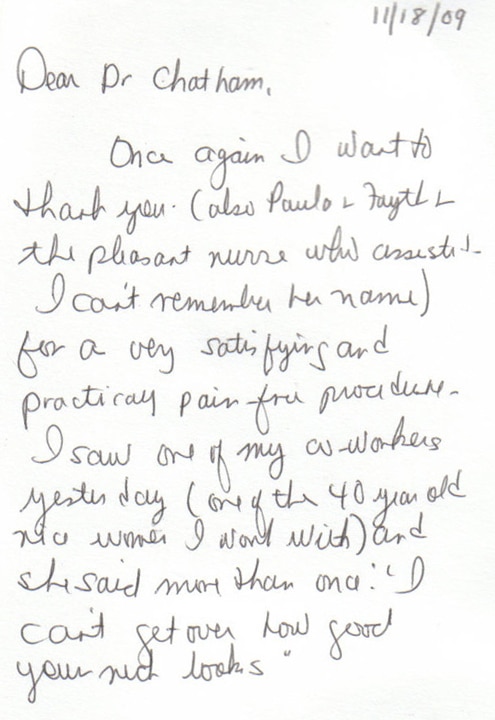 11/18/09
Dear Dr Chatham,
Once again I want to
thank you. (also Paula & Fayth &
the pleasant nurse who assisted-
I can't remember her name)
for a very satisfying and
practically pain-free procedure.
I saw one of my co-workers
yesterday (one of the 40 year old
nice women I work with) and
she said more than once: "I
can't get over how good
your neck looks"